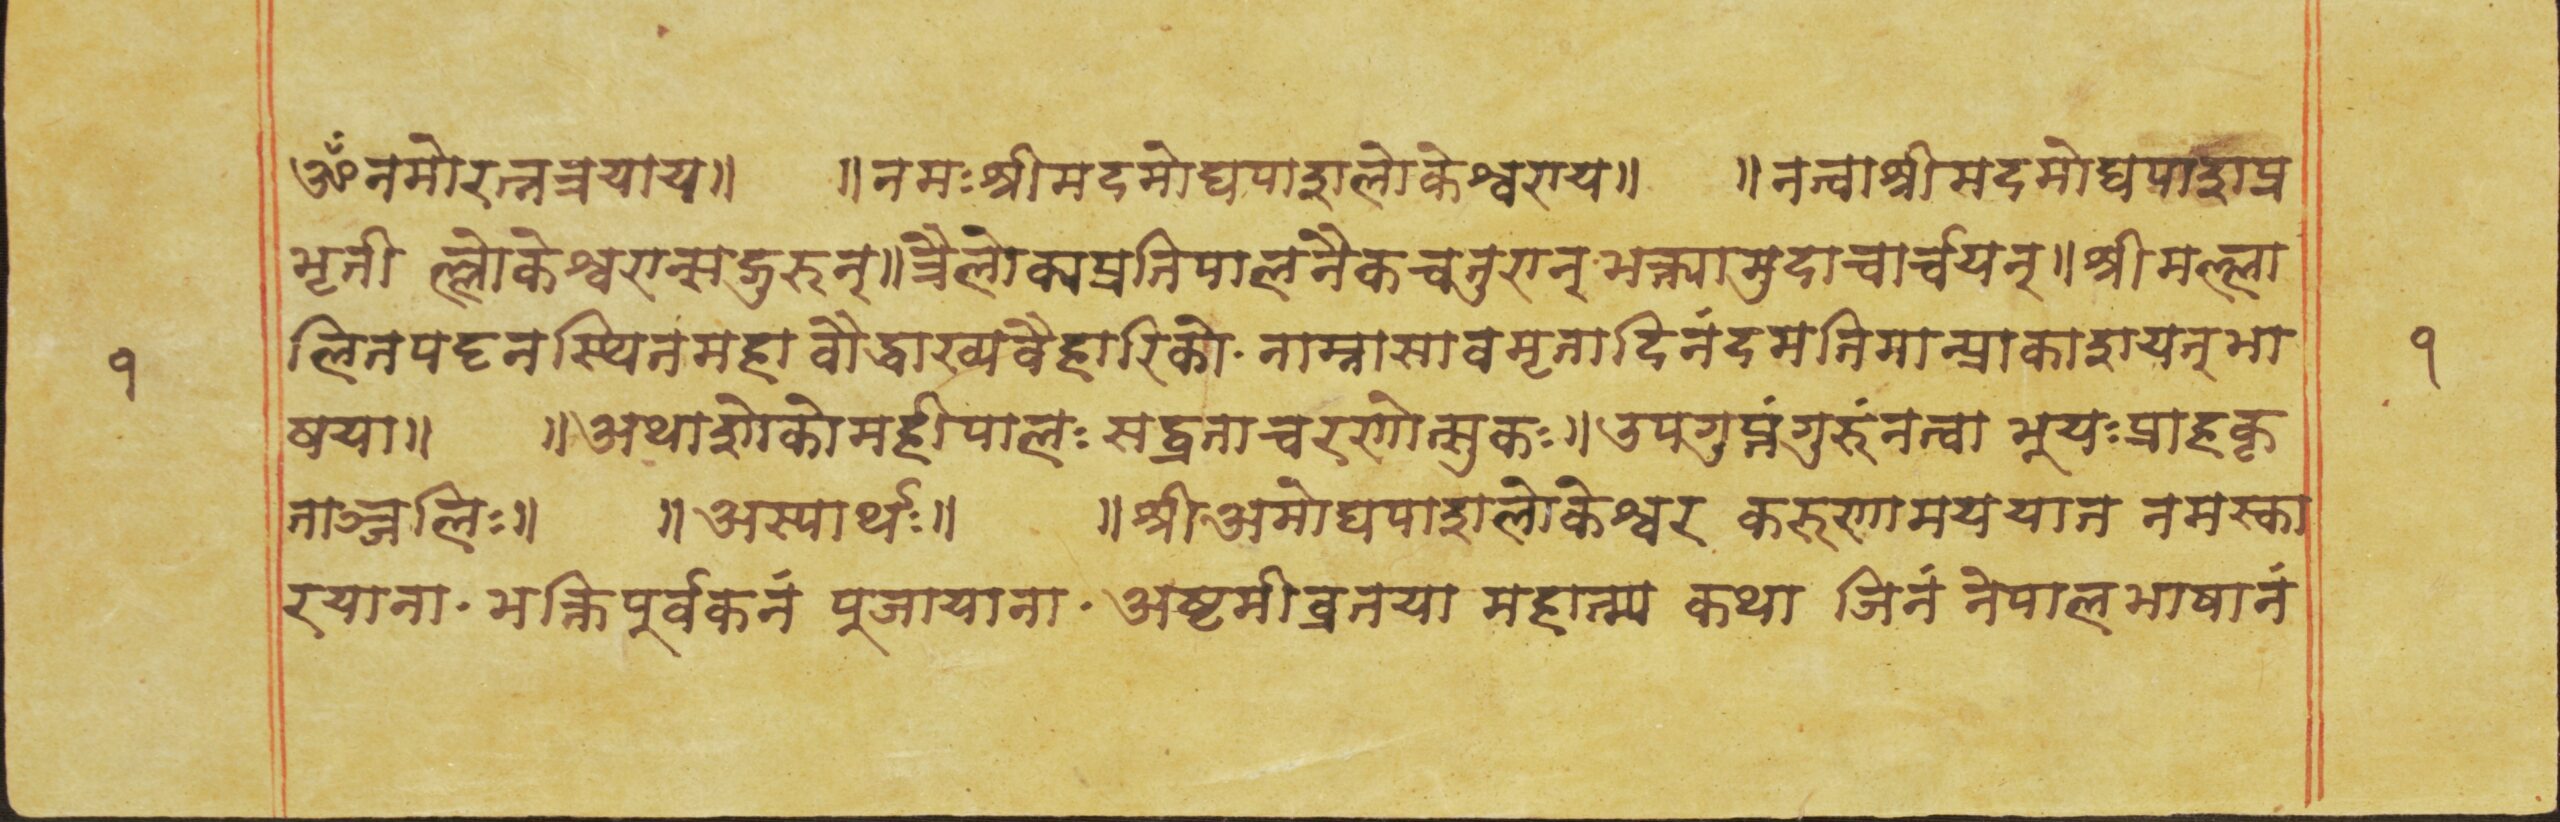 ॐनमोरत्नत्रयाय॥ ॥नमःश्रीमदमोघपाशलोकेश्वराय॥ ॥नत्वाश्रीमदमोघपाशप्र
भृती ल्लोकेश्वरान्सद्गुरून्॥त्रैलोक्यप्रतिपालनैकचतुरान्भक्त्यामुदाचार्च्चयन्॥श्रीमल्ला
लितपट्टनस्थितमहाबौद्धाख्यवैहारिको॰नाम्नासावमृतादिनंदमतिमान्प्राकाशयन्भा
षया॥ ॥अथाशोकोमहीपालःसद्व्रताचरणोत्सुकः॥उपगुप्तंगुरुंनत्वा भूयःप्राहकृ
ताञ्जलिः॥ ॥अस्यार्थः॥ ॥श्रीअमोघपाशलोकेश्वर करुणामययात नमस्का
रयाना॰भक्तिपूर्वकनं पूजायाना॰अष्टमीव्रतया महात्म्य कथा जिनं नेपालभाषानं
१
१